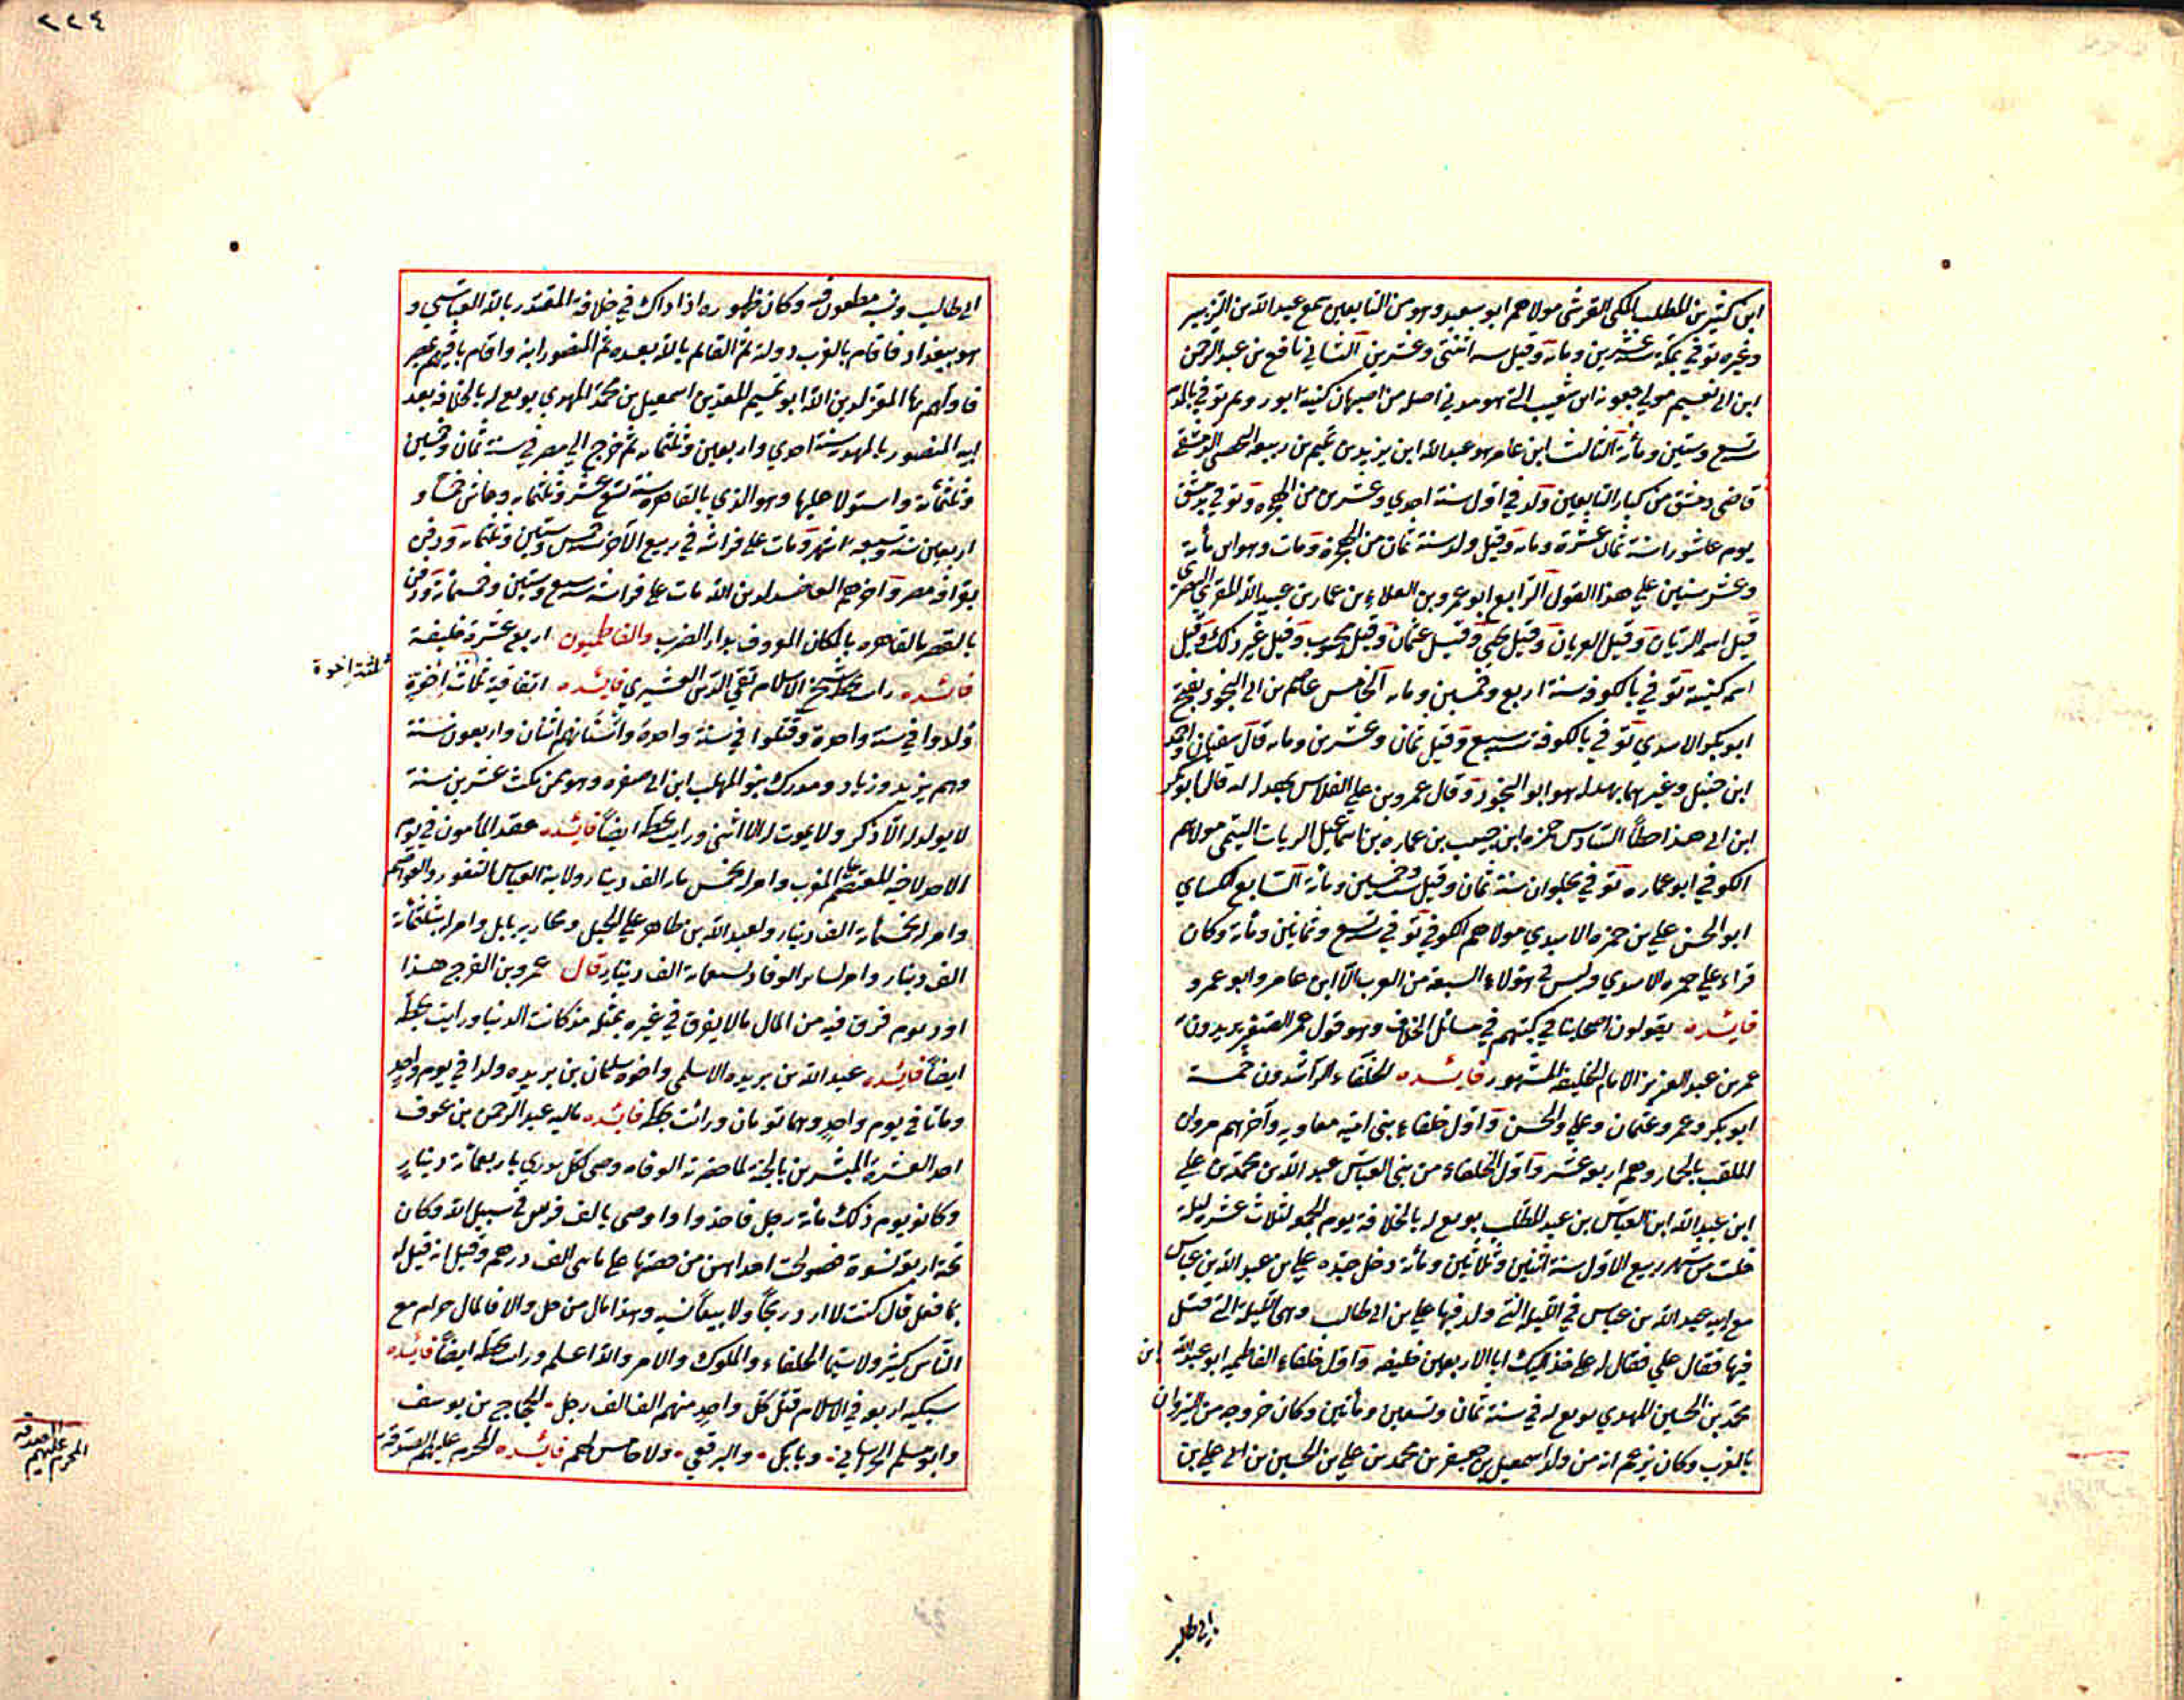 ابن كثير بن المطلب المكي القرشي مولاهم ابو سعيد وهو من التابعين سمع عبد الله بن الزبير
وغيره توفي بمكة سنة عشرين ومايه وقيل سنة اثنتي وعشرين الثاني نافع بن عبد الرحمن
ابن ابي نعيم مولي جعونه ابن شعيب الليثي هو مدني اصله من اصبهان كنيته ابو رويم توفي بالمدينه
سنة تسع وستين ومائة الثالث ابن عامر هو عبد الله ابن يزيد بن تميم بن ربيعه اليحصبي الدمشقي
قاضي دمشق من كبار التابعين ولد في اول سنة احدي وعشرين من الهجره وتوفي بدمشق
يوم عاشورا سنة ثمان عشرة ومايه وقيل ولد سنة ثمان من الهجرة ومات وهو ابن مائة
وعشر سنين علي هذا القول الرابع ابو عمرو بن العلاء بن عمار بن عبد الله المقري البصري
قيل اسمه الزبان وقيل العريان وقيل يحيي وقيل عثمان وقيل محبوب وقيل غير ذلك وقيل
اسمه كنيته توفي بالكوفه سنة اربع وخمسين ومايه الخامس عاصم بن ابي النجود بفتح
ابو بكر الاسدي توفي بالكوفة سنة سبع وقيل ثمان وعشرين ومايه قال سفيان واحمد
ابن حنبل وغيرهما بهدله هو ابو النجود وقال عمرو بن علي الفلاس بهدله امه قال ابو بكر
ابن ابي هذا خطأ السادس حمزه ابن حبيب بن عماره بن اسماعيل الزيات التيمي مولاهم
الكوفي ابو عماره توفي بحلوان سنة ثمان وقيل ست وخمسين ومائة السابع الكساي
ابو الحسن علي بن حمزه الاسدي مولاهم الكوفي توفي سنة تسع وثمانين ومائة وكان
قراء علي حمزه الاسدي وليس في هؤلاء السبعة من العرب الا ابن عامر وابو عمرو
فايده يقولون اصحابنا في كتبهم في مسائل الخلاف وهو قول عمر الصغير يريدون
عمر بن عبد العزيز الامام الخليفة المشهور فايده الخلفاء الراشدون خمسة
ابو بكر وعمر وعثمان وعلي والحسن واول خلفاء بني امية معاويه وآخرهم مروان
الملقب بالحمار وهم اربعة عشر واول الخلفاء من بني العباس عبد الله بن محمد بن علي
ابن عبد الله ابن العباس بن عبد المطلب بويع له بالخلافة يوم الجمعة لثلاث عشر ليلة
خلت من شهر ربيع الاول سنة اثنين وثلاثين ومائة دخل جده علي بن عبد الله بن عباس
مع ابيه عبد الله بن عباس في الليلة التي ولد فيها علي بن ابي طالب وهي الليلة التي قتل
فيها فقال علي فقال له علي خذ اليك ابا الاربعين خليفه واول خلفاء الفاطميه ابو عبد الله ابن
محمد بن الحسين المهدي بويع له في سنة ثمان وتسعين ومائتين وكان خروجه من القيروان
بالمغرب وكان يزعم انه من ولد اسمعيل بن جعفر بن محمد بن علي بن الحسين بن علي بن
ابي طالب
٢٢٤
ابي طالب ونسبه مطعون فيه وكان ظهوره اذ ذاك في خلافة المقتدر بالله العباسي و
هو ببغداد فاقام بالغرب دولة ثم القائم بالله بعده ثم المنصور ابنه واقام باقيهم بمصر
فاولهم بها المعز لدين الله ابو تميم المعد بن اسمعيل بن محمد المهدي بويع له بالخلافه بعد
ابيه المنصور بالمهديه سنة احدي واربعين وثلثمايه ثم خرج الي مصر في سنة ثمان وخمسين
وثلثمائة واستولا عليها وهو الذي بنا القاهره سنة تسع عشر وثلثمايه وعاش خمسا و
اربعين سنة وسبعه اشهر ومات علي فراشه في ربيع الآخر سنة خمس وستين وثلثمايه ودفن
بقرافة مصر وآخرهم العاضد لدين الله مات علي فراشه سنة سبع وستين وخمسمائة ودفن
بالقصر بالقاهره بالمكان المعروف بدار الضرب والفاطميون اربع عشرة خليفة
فائده رايت بخط شيخ الاسلام تقي الدين القشيري فائده اتفاقية ثلاث اخوة
ثلثة اخوة
ولدوا في سنة واحدة وقتلوا في سنة واحدة واسنانهم اثنان واربعون سنة
وهم يزيد وزياد ومدرك بنو المهلب ابن ابي صفره وهو ممن مكث عشرين سنة
لا يولد له الا ذكر ولا يموت له الا انثي ورايت بخطه ايضا فائده عقد المأمون في يوم
الاحد لاخيه المعتصم المغرب وامر له بخمس مايه الف دينار ولابنه العباس الثغور والعواصم
وامر له بخمسمائة الف دينار ولعبد الله بن طاهر علي الجبل ومحاربة بابل وامر له بثلثمائة
الف دينار وامر لساير الوفاد بسبعماية الف دينار قال عمرو بن الفرج هذا
اول يوم فرق فيه من المال مالا يفرق في غيره بمثله مذ كانت الدنيا ورايت بخطه
ايضا فائده عبد الله بن بريده الاسلمي واخوه سلمان بن بريده ولدا في يوم واحد
وماتا في يوم واحد وهما توءمان ورائت بخطه فائده ماليه عبد الرحمن بن عوف
احد العشرة المبشرين بالجنة لما حضرته الوفاه وصي لكل بدري باربعمائة دينار
وكانو يوم ذلك مائة رجل فاخذوا واوصي بالف فرس في سبيل الله وكان
تحته اربعة نسوة فصولحت احداهن من حصتها علي مايتي الف درهم وقيل انه قيل له
بما فعل قال كنت لا ارد ربحا ولا بيعا نسيه وهذا مال من حل والا فالمال حرام مع
الناس كثير ولا سيما الخلفاء والملوك والامر والله اعلم ورايت بخطه ايضا فائده
سبكيه اربعة في الاسلام قتل كل واحد منهم الف الف رجل الحجاج بن يوسف
وابو مسلم الخراساني وبابك والبرقعي ولا خامس لهم فائده المحرم عليهم الصدقة
المحرم عليهم الصدقة